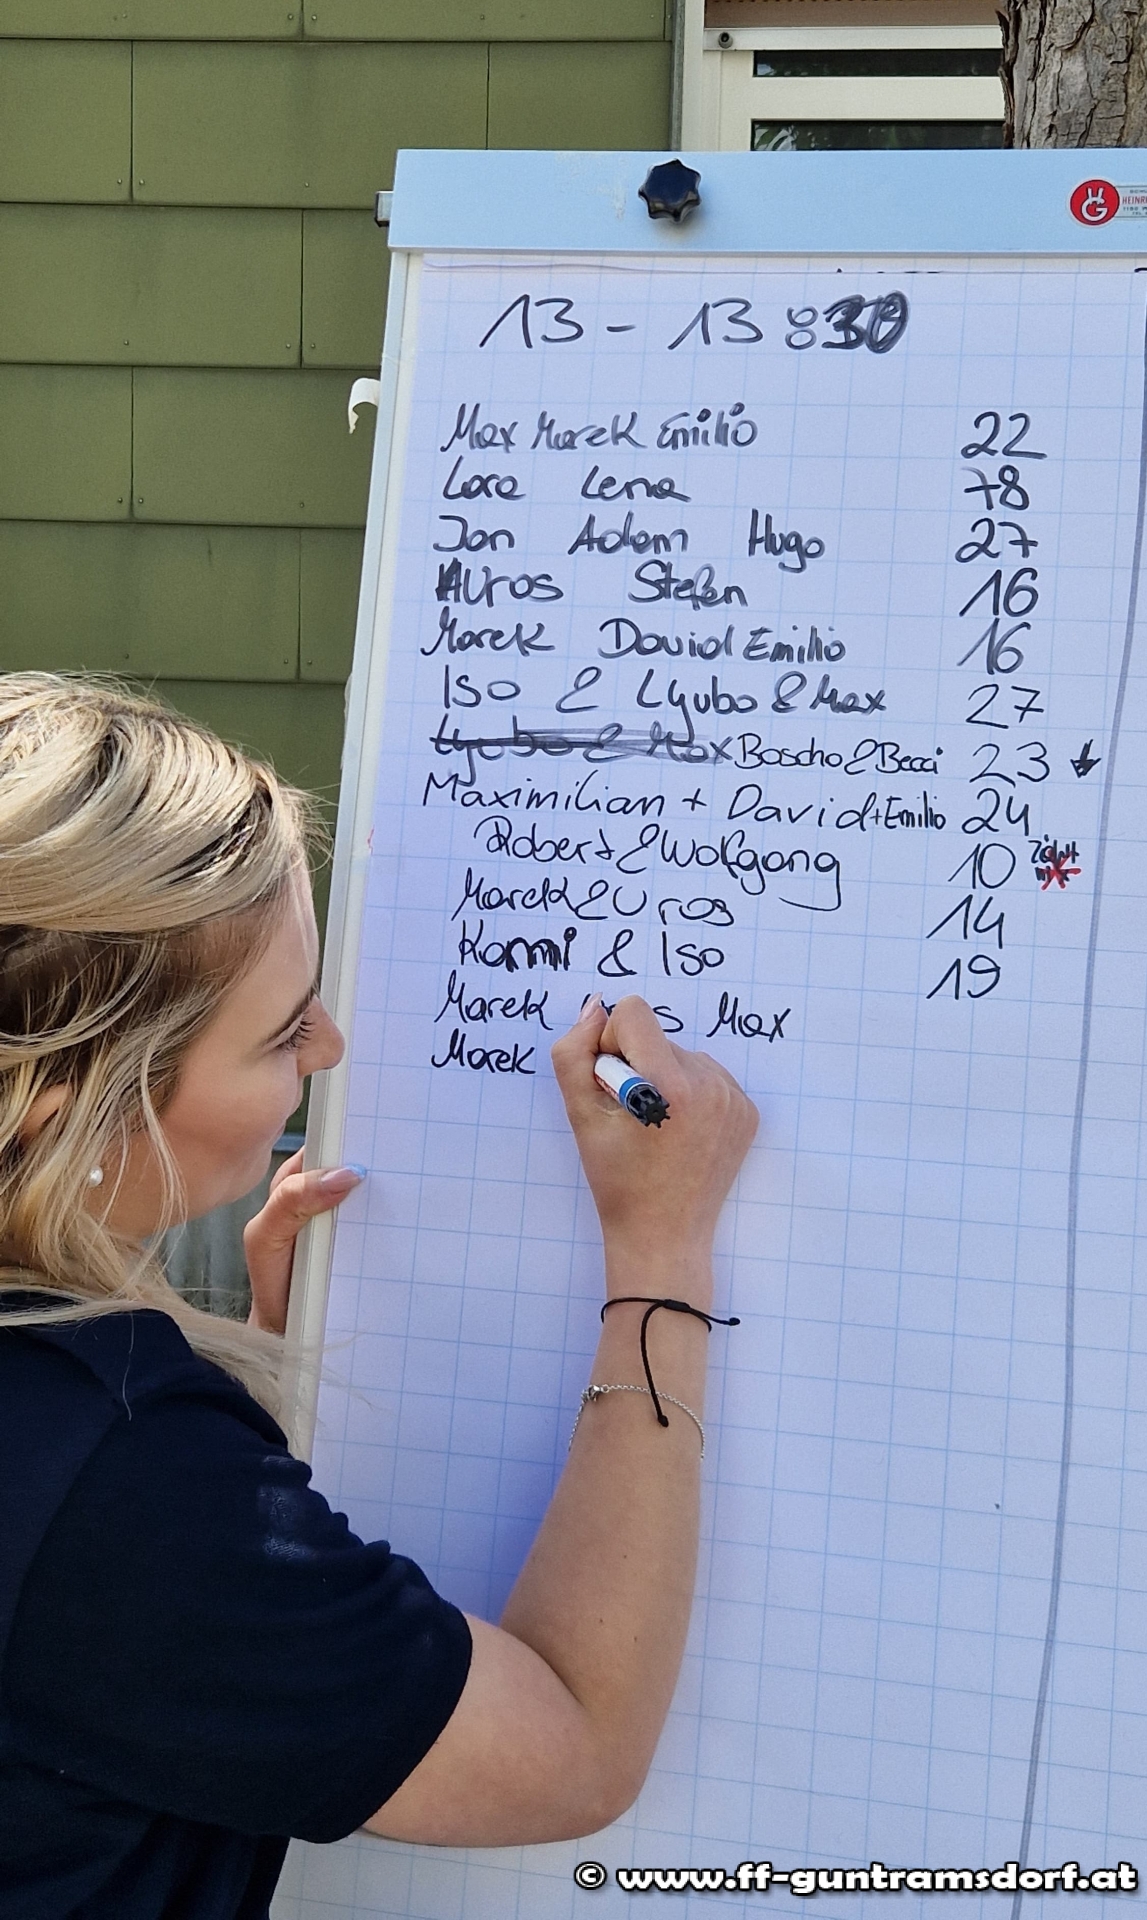 HG
HEINR
13 - 13:30
Max Marek Emilio 22
Lara Lena 78
Jan Adam Hugo 27
Uros Stefan 16
Marek David Emilio 16
Iso & Lyubo & Max 27
Lyubo & Max Boscho & Becci 23
Maximilian + David + Emilio 24
Robert & Wolfgang 10 Zählt
Marek & Uros 14
Kommi & Iso 19
Marek Max
Marek
© www.ff-guntramsdorf.at